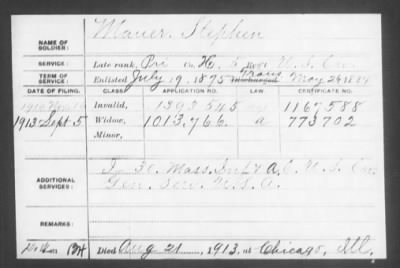 NAME OF SOLDIER: Mauer, Stephen
SERVICE: Late rank, Pri Co. H, 5 Reg't U.S. Cav.
TERM OF SERVICE: Enlisted July 19, 1875 Trans. May 26 1884
DATE OF FILING. CLASS. APPLICATION NO. LAW. CERTIFICATE NO.
Invalid, 1393545 1167588
1913 Sept 5 Widow, 1013,766 a 773702
Minor,
ADDITIONAL SERVICES: 30 Mass. Inf & U.S. Cav.
Gen. Serv. U.S.A.
REMARKS:
Died Aug 21, 1913, at Chicago, Ill.